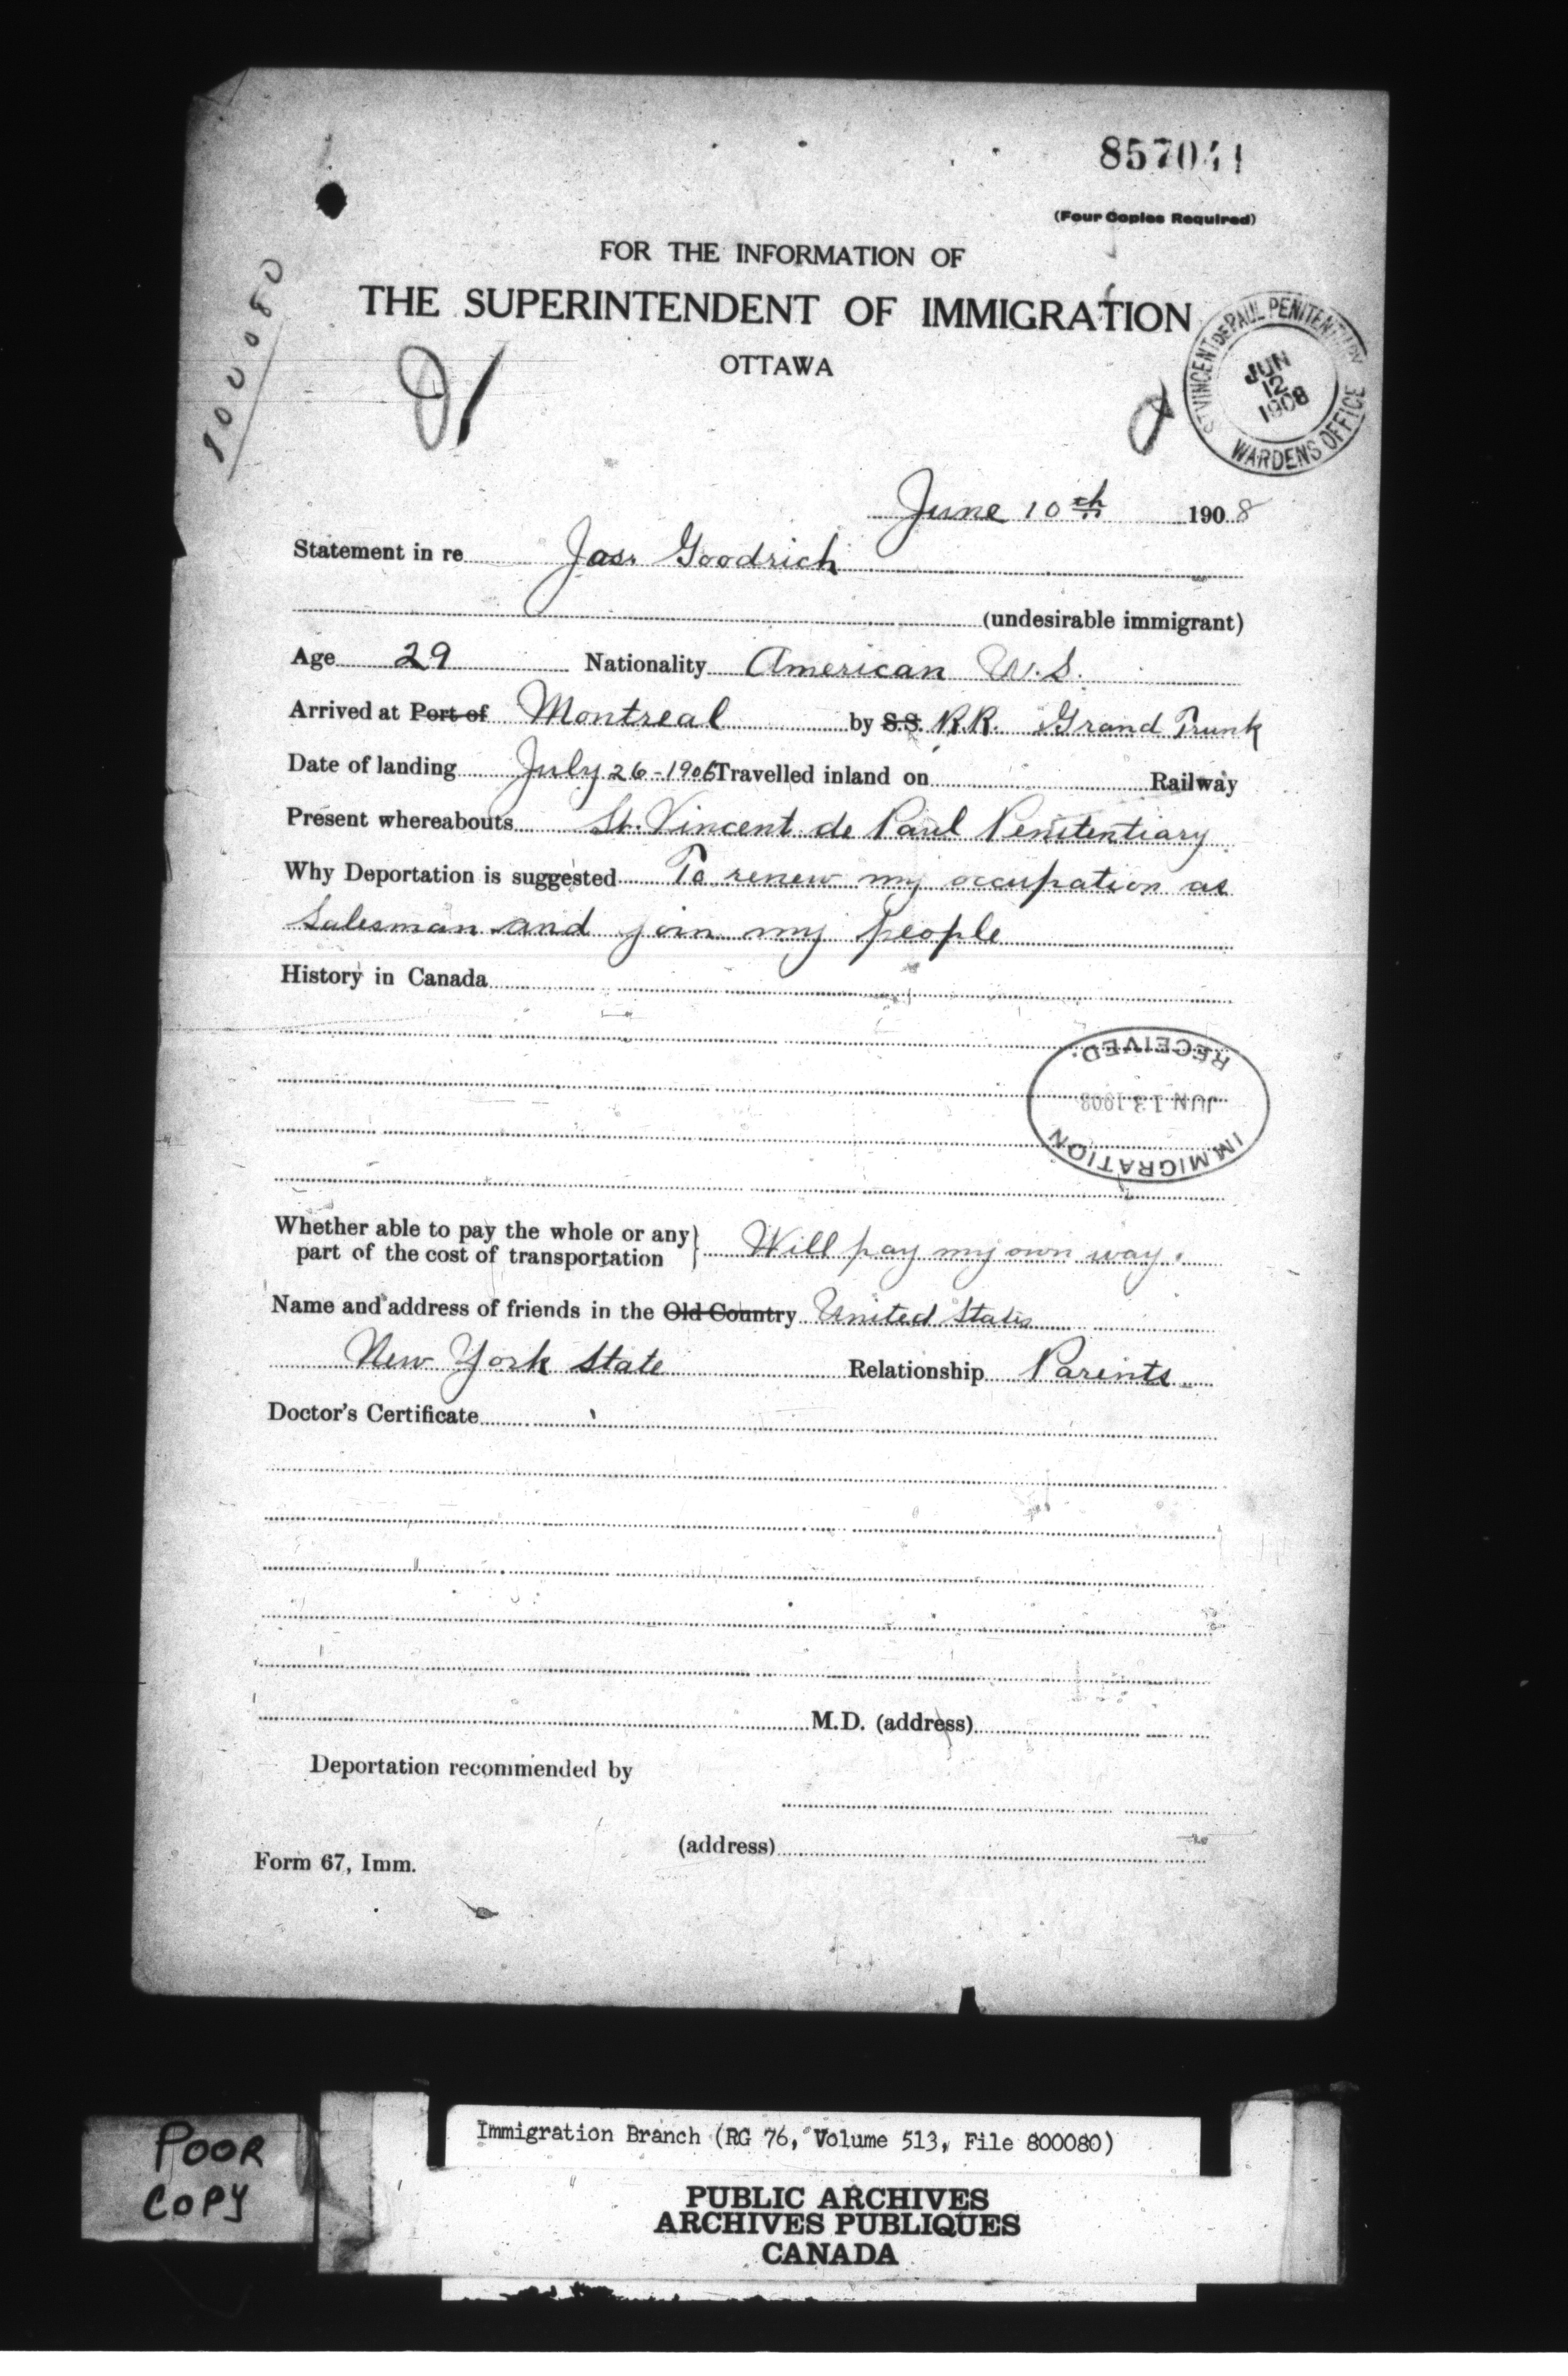 (Four Copies Required)
FOR THE INFORMATION OF
THE SUPERINTENDENT OF IMMIGRATION
OTTAWA
800080
ST VINCENT DE PAUL PENITENTIARY
JUN
12
1908
WARDENS OFFICE
June 10th 1908
Statement in re Jas. Goodrich
(undesirable immigrant)
Age 29 Nationality American U.S.
Arrived at Port of Montreal by S.S. R.R. Grand Trunk
Date of landing July 26-1906 Travelled inland on Railway
Present whereabouts St. Vincent de Paul Penitentiary
Why Deportation is suggested To renew my occupation as
Salesman and join my people
History in Canada
RECEIVED.
JUN 13 1908
IMMIGRATION
Whether able to pay the whole or any
part of the cost of transportation Will pay my own way.
Name and address of friends in the Old Country United States
New York State Relationship Parents
Doctor's Certificate
M.D. (address)
Deportation recommended by
(address)
Form 67, Imm.
POOR
COPY
Immigration Branch (RG 76, Volume 513, File 800080)
PUBLIC ARCHIVES
ARCHIVES PUBLIQUES
CANADA